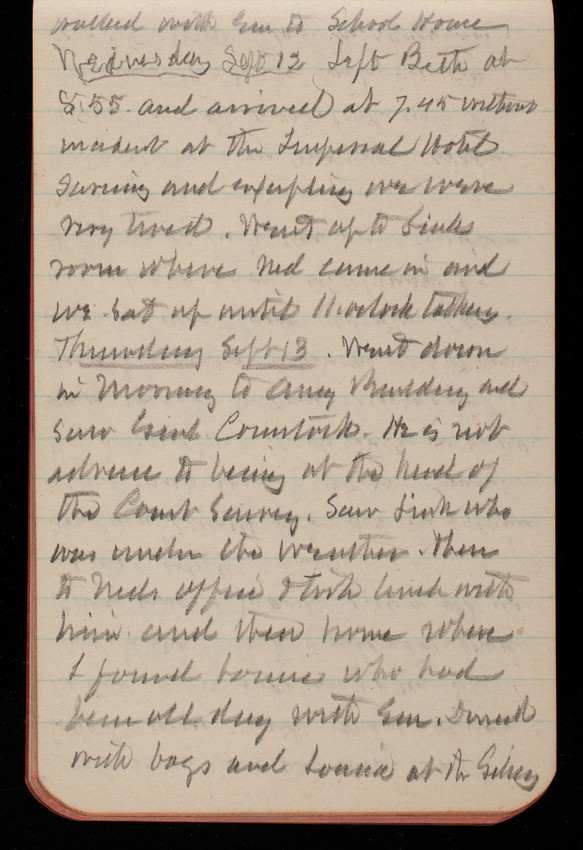 walked with Em to School House
Wednesday Sept 12 Left Beth at
8.55 and arrived at 7.45 without
incident at the Imperial Hotel
and we were
very tired. Went up to
room where Ned came in and
we sat up until 11 oclock talking.
Thursday Sept 13. Went down
in Morning to Army Building and
saw Genl Comstock. He is not
adverse to being at the head of
the Coast Survey. Saw who
was under the weather. then
to Neds office & took lunch with
him and then home where
I found who had
been all day with Em. Dined
with boys and at the